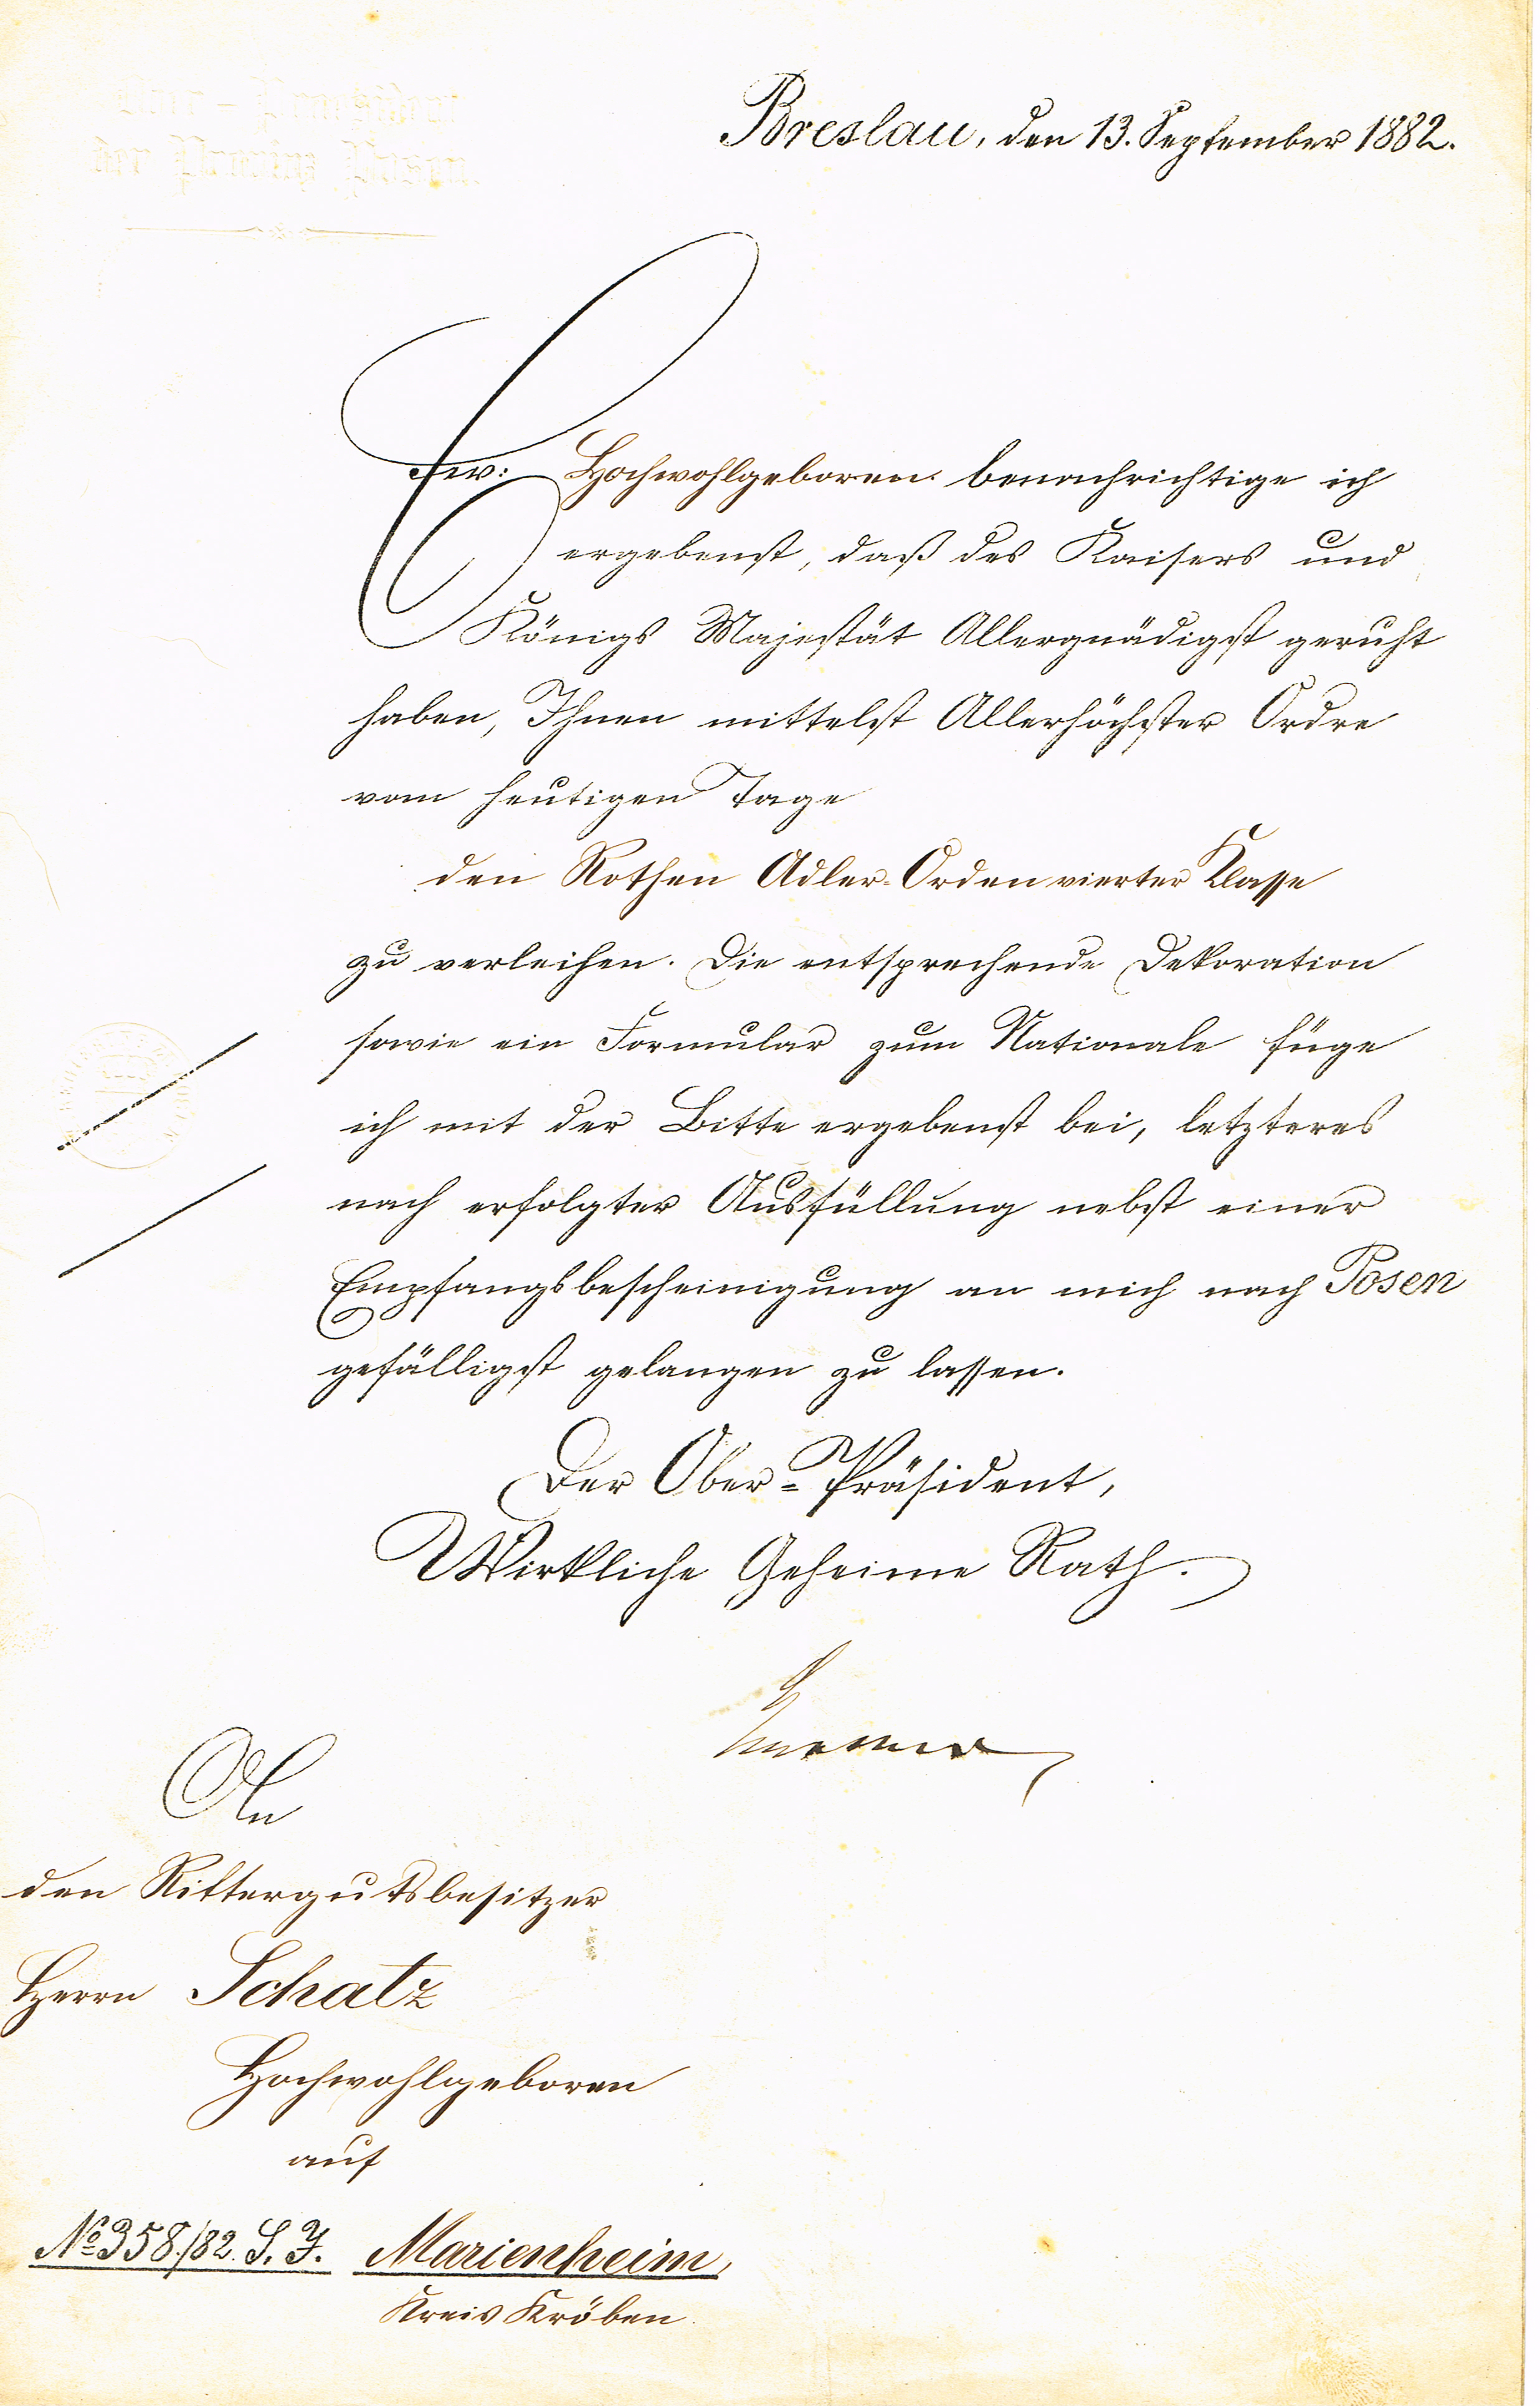 Ober-Praesidium
der Provinz Posen.
Breslau, den 13. September 1882.
Ew: Hochwohlgeboren benachrichtige ich
ergebenst, daß des Kaisers und
Königs Majestät Allergnädigst geruht
haben, Ihnen mittelst Allerhöchster Ordre
vom heutigen Tage
den Rothen Adler-Orden vierter Klasse
zu verleihen. Die entsprechende Dekoration
sowie ein Formular zum Nationale füge
ich mit der Bitte ergebenst bei, letzteres
nach erfolgter Ausfüllung nebst einer
Empfangsbescheinigung an mich nach Posen
gefälligst gelangen zu lassen.
Der Ober-Präsident,
Wirkliche Geheime Rath.
An
den Rittergutsbesitzer
Herrn Schatz
Hochwohlgeboren
auf
№ 358./82. S. J. Marienheim,
Kreis Kröben.